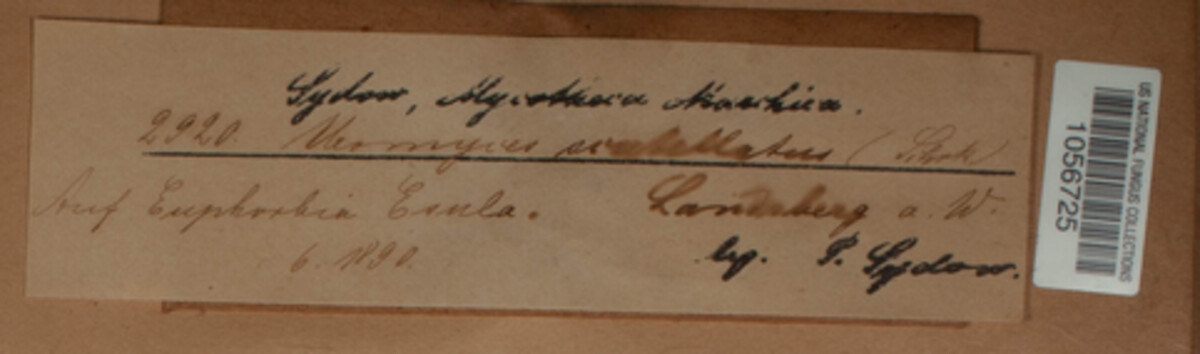 Sydow, Mycotheca Marchica.
2920. Uromyces scutellatus (Schrk)
Auf Euphorbia Esula. Landsberg a. W.
6. 1890.
leg. P. Sydow.
US NATIONAL FUNGUS COLLECTIONS
1056725